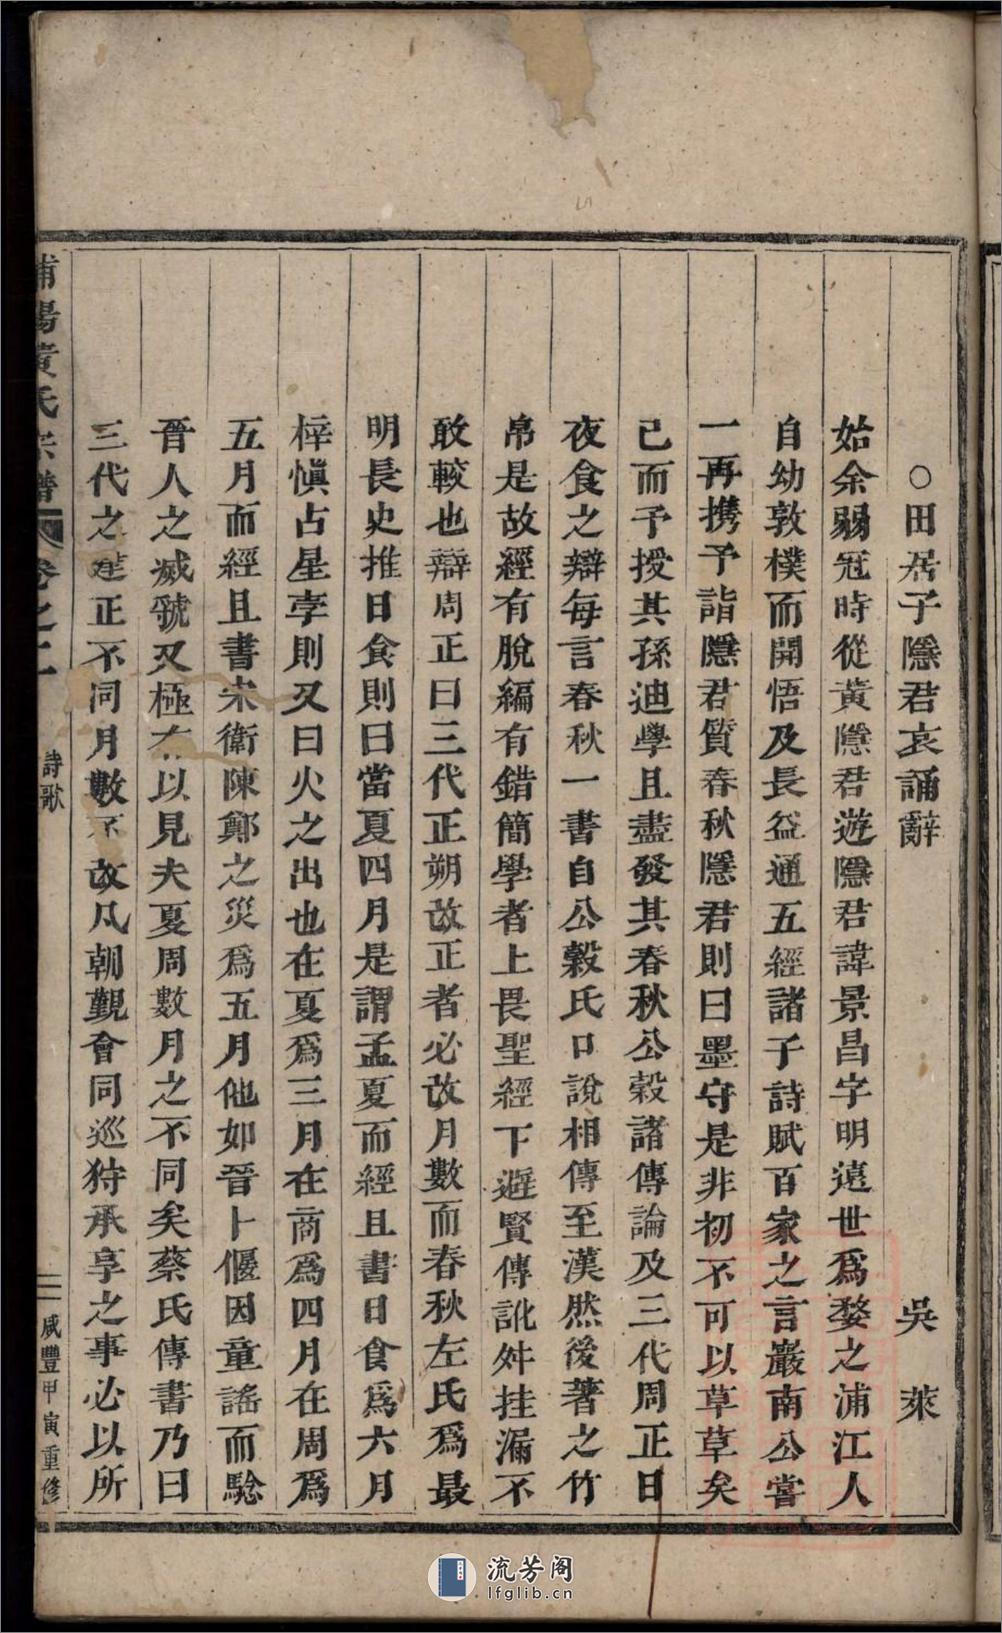 ○田居子隱君哀誦辭　吳萊
始余弱冠時從黃隱君遊隱君諱景昌字明遠世爲婺之浦江人
自幼敦樸而開悟及長益通五經諸子詩賦百家之言嚴南公嘗
一再攜予詣隱君質春秋隱君則曰墨守是非初不可以草草矣
已而予授其孫迪學且盡發其春秋公穀諸傳論及三代周正日
夜食之辯每言春秋一書自公穀氏口說相傳至漢然後著之竹
帛是故經有脫編有錯簡學者上畏聖經下避賢傳訛舛挂漏不
敢較也辯周正曰三代正朔故正者必改月數而春秋左氏爲最
明長史推日食則曰當夏四月是謂孟夏而經且書日食爲六月
梓愼占星孛則又曰火之出也在夏爲三月在商爲四月在周爲
五月而經且書宋衛陳鄭之災爲五月他如晉卜偃因童謠而驗
晉人之滅虢又極 以見夫夏周數月之不同矣蔡氏傳書乃曰
三代之建正不同月數不改凡朝覲會同巡狩承享之事必以所
浦陽黃氏宗譜　卷之二　詩歌　咸豐甲寅重修
流芳阁
lfglib.cn